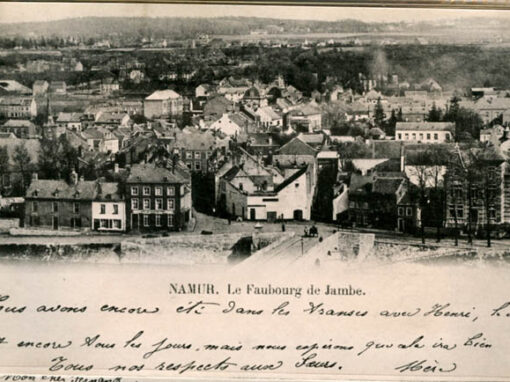 NAMUR. Le Faubourg de Jambe.
avons encore été dans les transes avec Henri,
encore tous les jours, mais nous espérons que ale ira bien
Tous nos respects aux Sœurs. Mère